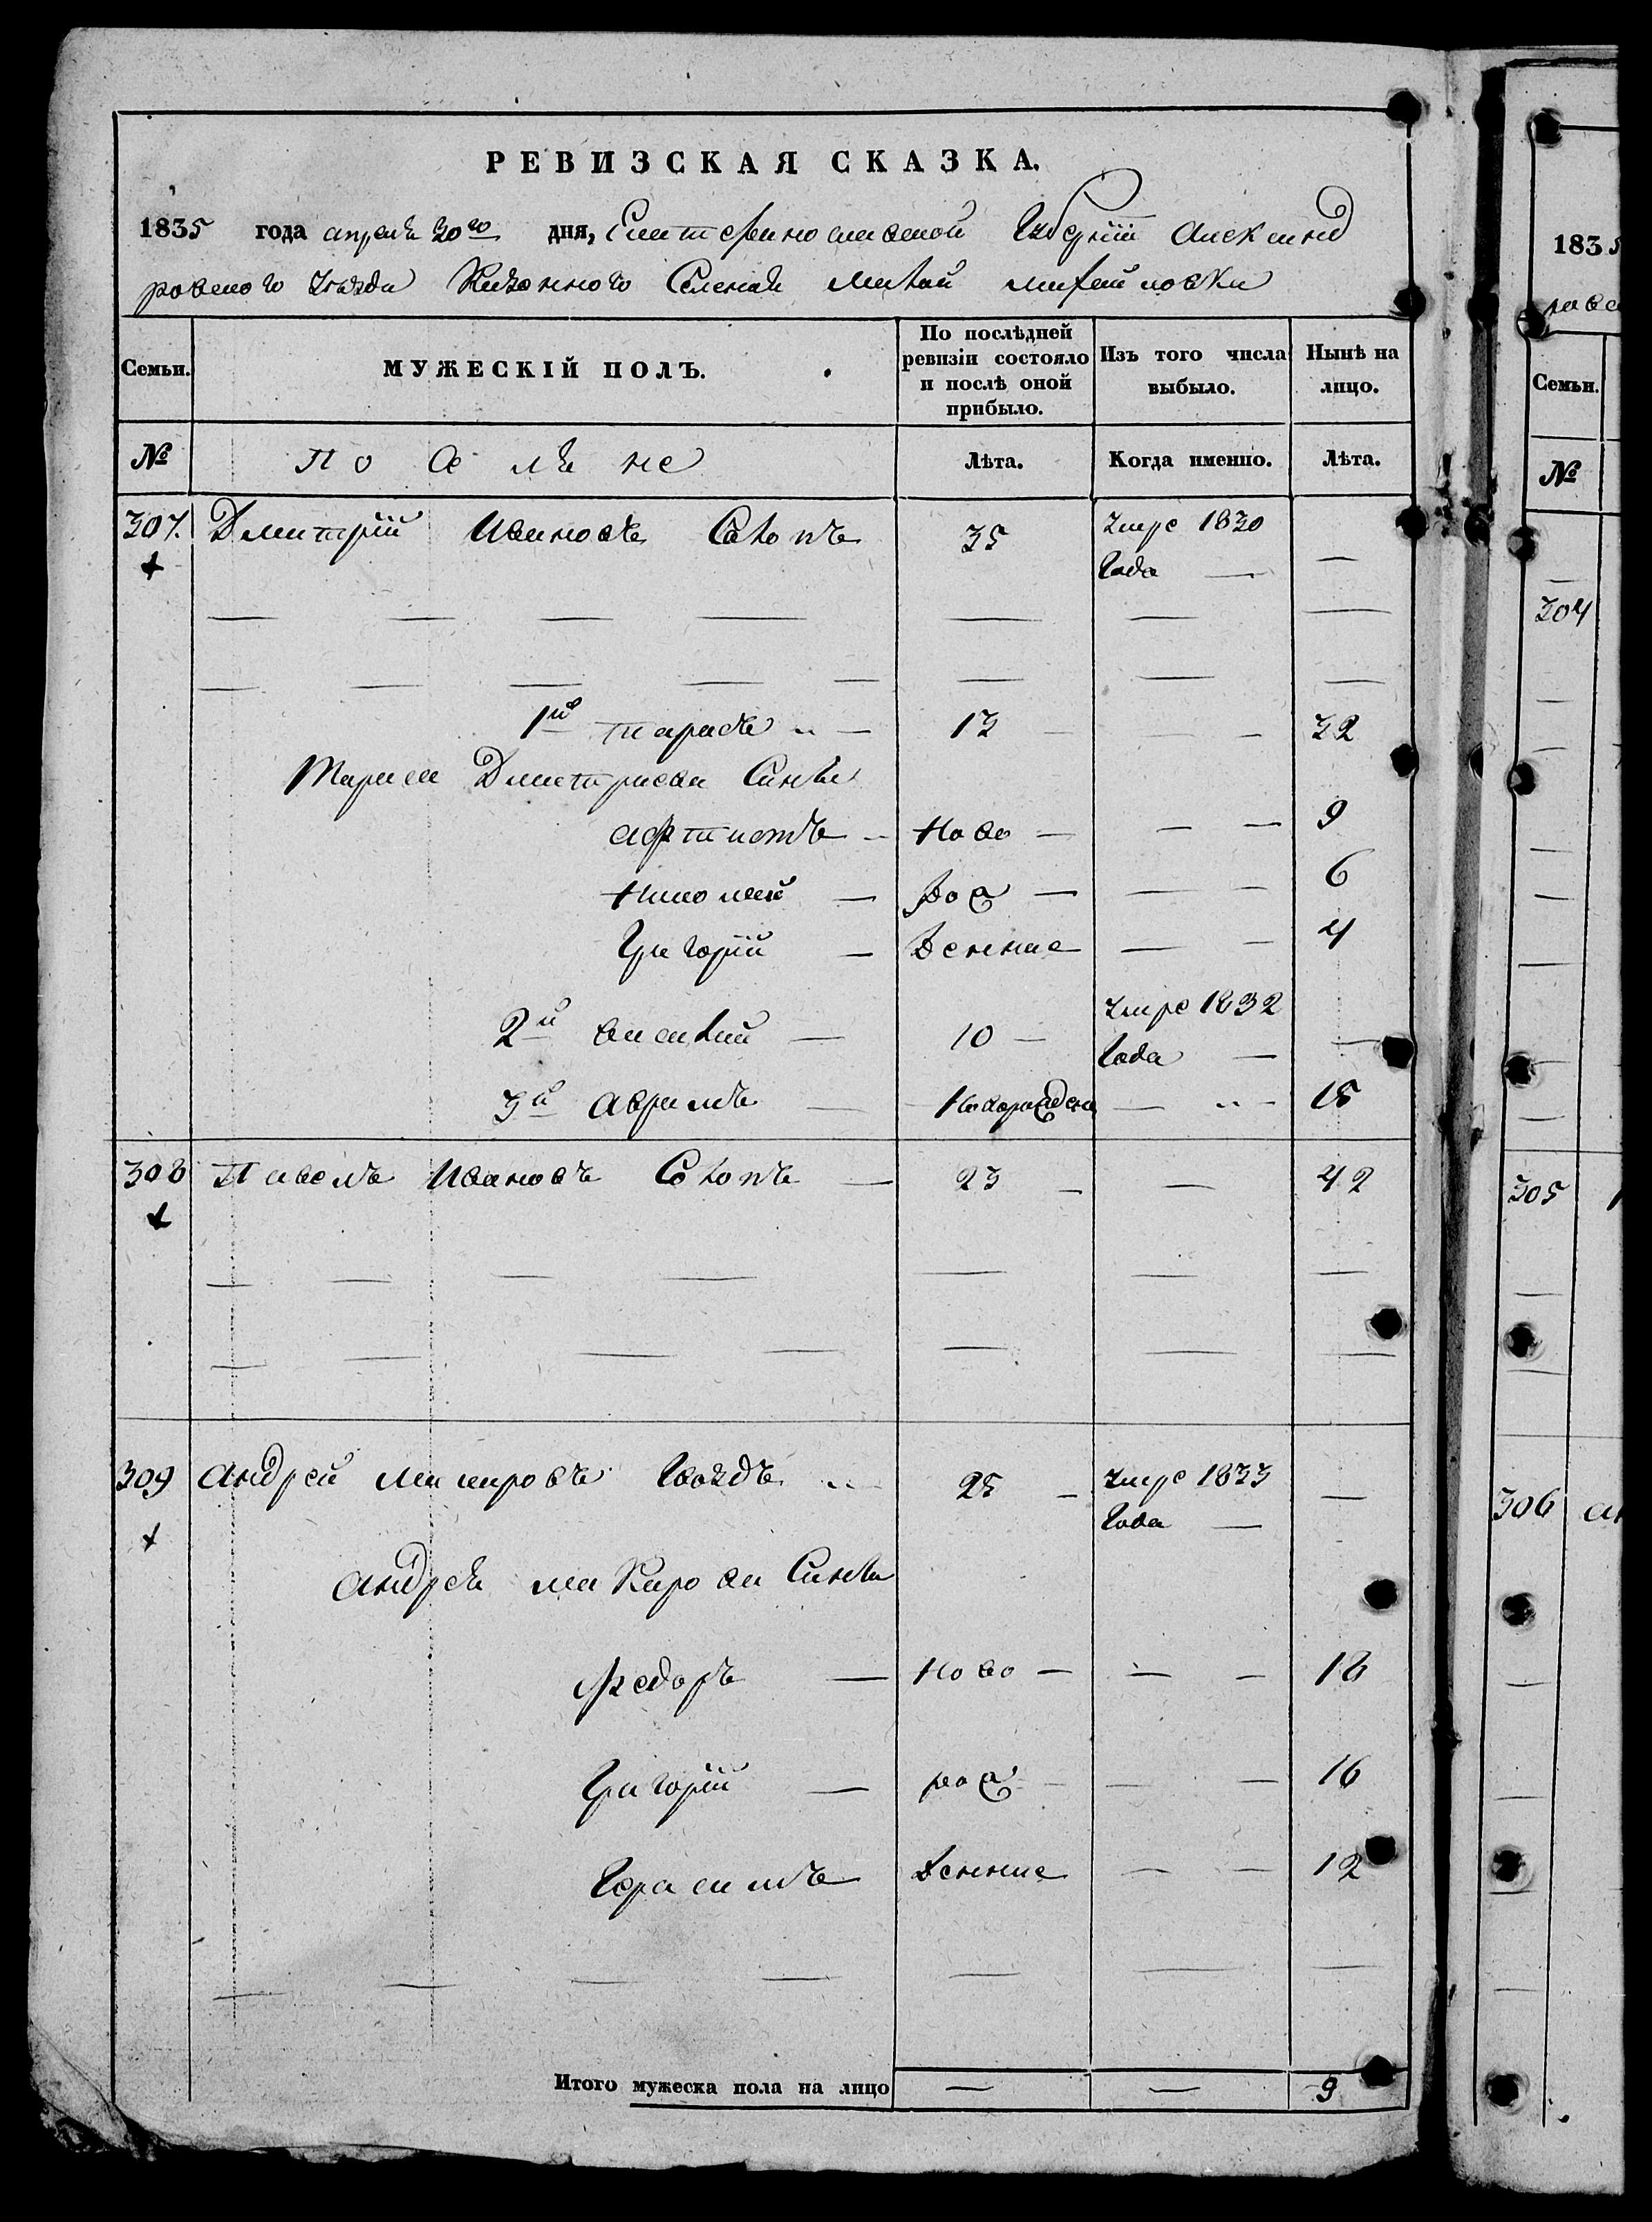 РЕВИЗСКАЯ СКАЗКА.
1835 года апреля 30го дня, Екатеринославской Губернии Александ
ровского Уезда Казенного Селения Малой Михайловки
Семьи. МУЖЕСКІЙ ПОЛЪ. По послѣдней ревизіи состояло и послѣ оной прибыло. Изъ того числа выбыло. Нынѣ на лицо.
№ Поселяне Лѣта. Когда именно. Лѣта.
307. Дмитрій Ивановъ 35 Умре 1830 Года —
1й Тарасъ — 13 — — 32
Тараса Дмитриева Сыны
Николай — рож — — — 6
Григорій — денные — — 4
2й Василий — 10 — Умре 1832 Года — —
3й Аврамъ — Новорожден — — 18
308 Павелъ Ивановъ — 23 — — 42
309 Андрей Макаровъ Гвоздь 28 — Умре 1833 Года — —
Андрея Макарова Сыны
Федоръ — Ново — — — 18
Григорій — рож — — — 16
Герасимъ денные — — 12
Итого мужеска пола на лицо — — 9
1835
Семьи.
№
304
305
306